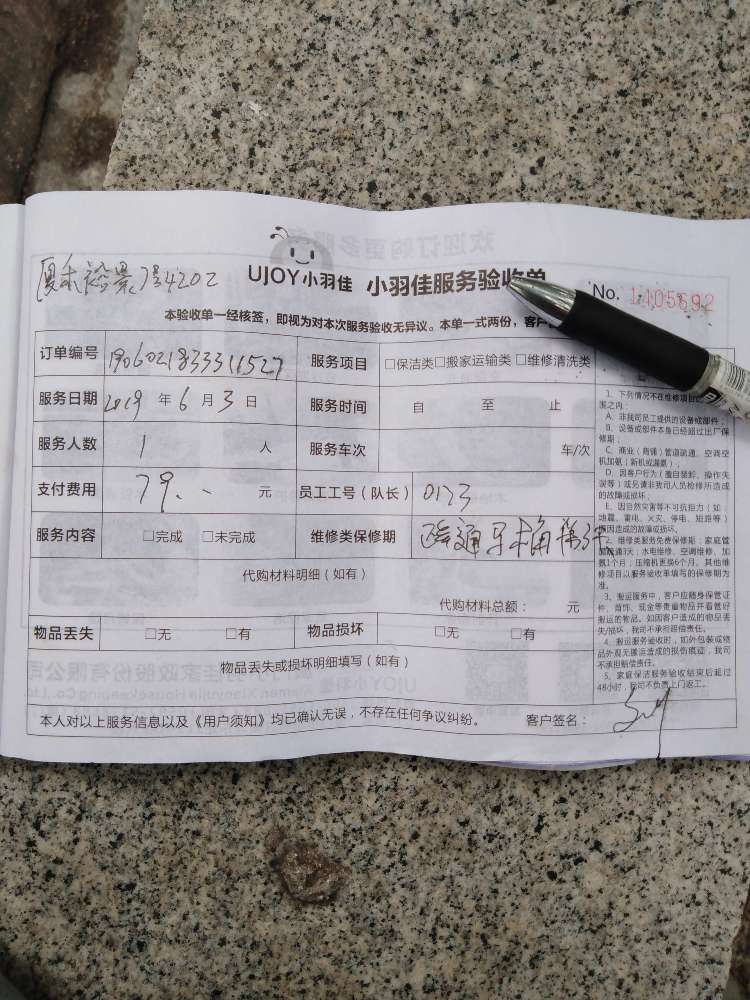 UJOY小羽佳 小羽佳服务验收单 No. 1105692
7号4202
本验收单一经核签，即视为对本次服务验收无异议。本单一式两份，客户
订单编号 1906021833311527 服务项目 □保洁类□搬家运输类□维修清洗类
服务日期 2019 年 6 月 3 日 服务时间 自 至 止
服务人数 1 人 服务车次 车/次
支付费用 79. 元 员工工号（队长） 0173
服务内容 □完成 □未完成 维修类保修期 疏通
代购材料明细（如有）
代购材料总额： 元
物品丢失 □无 □有 物品损坏 □无 □有
物品丢失或损坏明细填写（如有）
本人对以上服务信息以及《用户须知》均已确认无误，不存在任何争议纠纷。 客户签名：
1、下列情况不在维修项目
围之内：
A、非我司员工提供的设备或部件；
B、设备或部件本身已经超过出厂保
修期；
C、商业（商铺）管道疏通、空调空
机加氨（新机或漏氨）
D、因客户行为（擅自装卸、操作失
误等）或另请非我司人员检修所造成
的故障或损坏；
E、因自然灾害等不可抗拒力（如：
地震、雷电、火灾、停电、短路等）
因造成的故障或损坏。
2、维修类服务免费保修期：家庭管
疏通3天；水电维修、空调维修、加
氨1个月；压缩机更换6个月。其他维
修项目以服务验收单填写的保修期为
准。
3、搬运服务中，客户应随身保管证
件、首饰、现金等贵重物品并看管好
搬运的物品。如因客户造成的物品丢
失/损坏，我司不承担赔偿责任。
4、搬运服务验收时，如外包装或物
品外观无搬运造成的损伤痕迹，我司
不承担赔偿责任。
5、家庭保洁服务验收结束后超过
48小时，我司不负责上门返工。